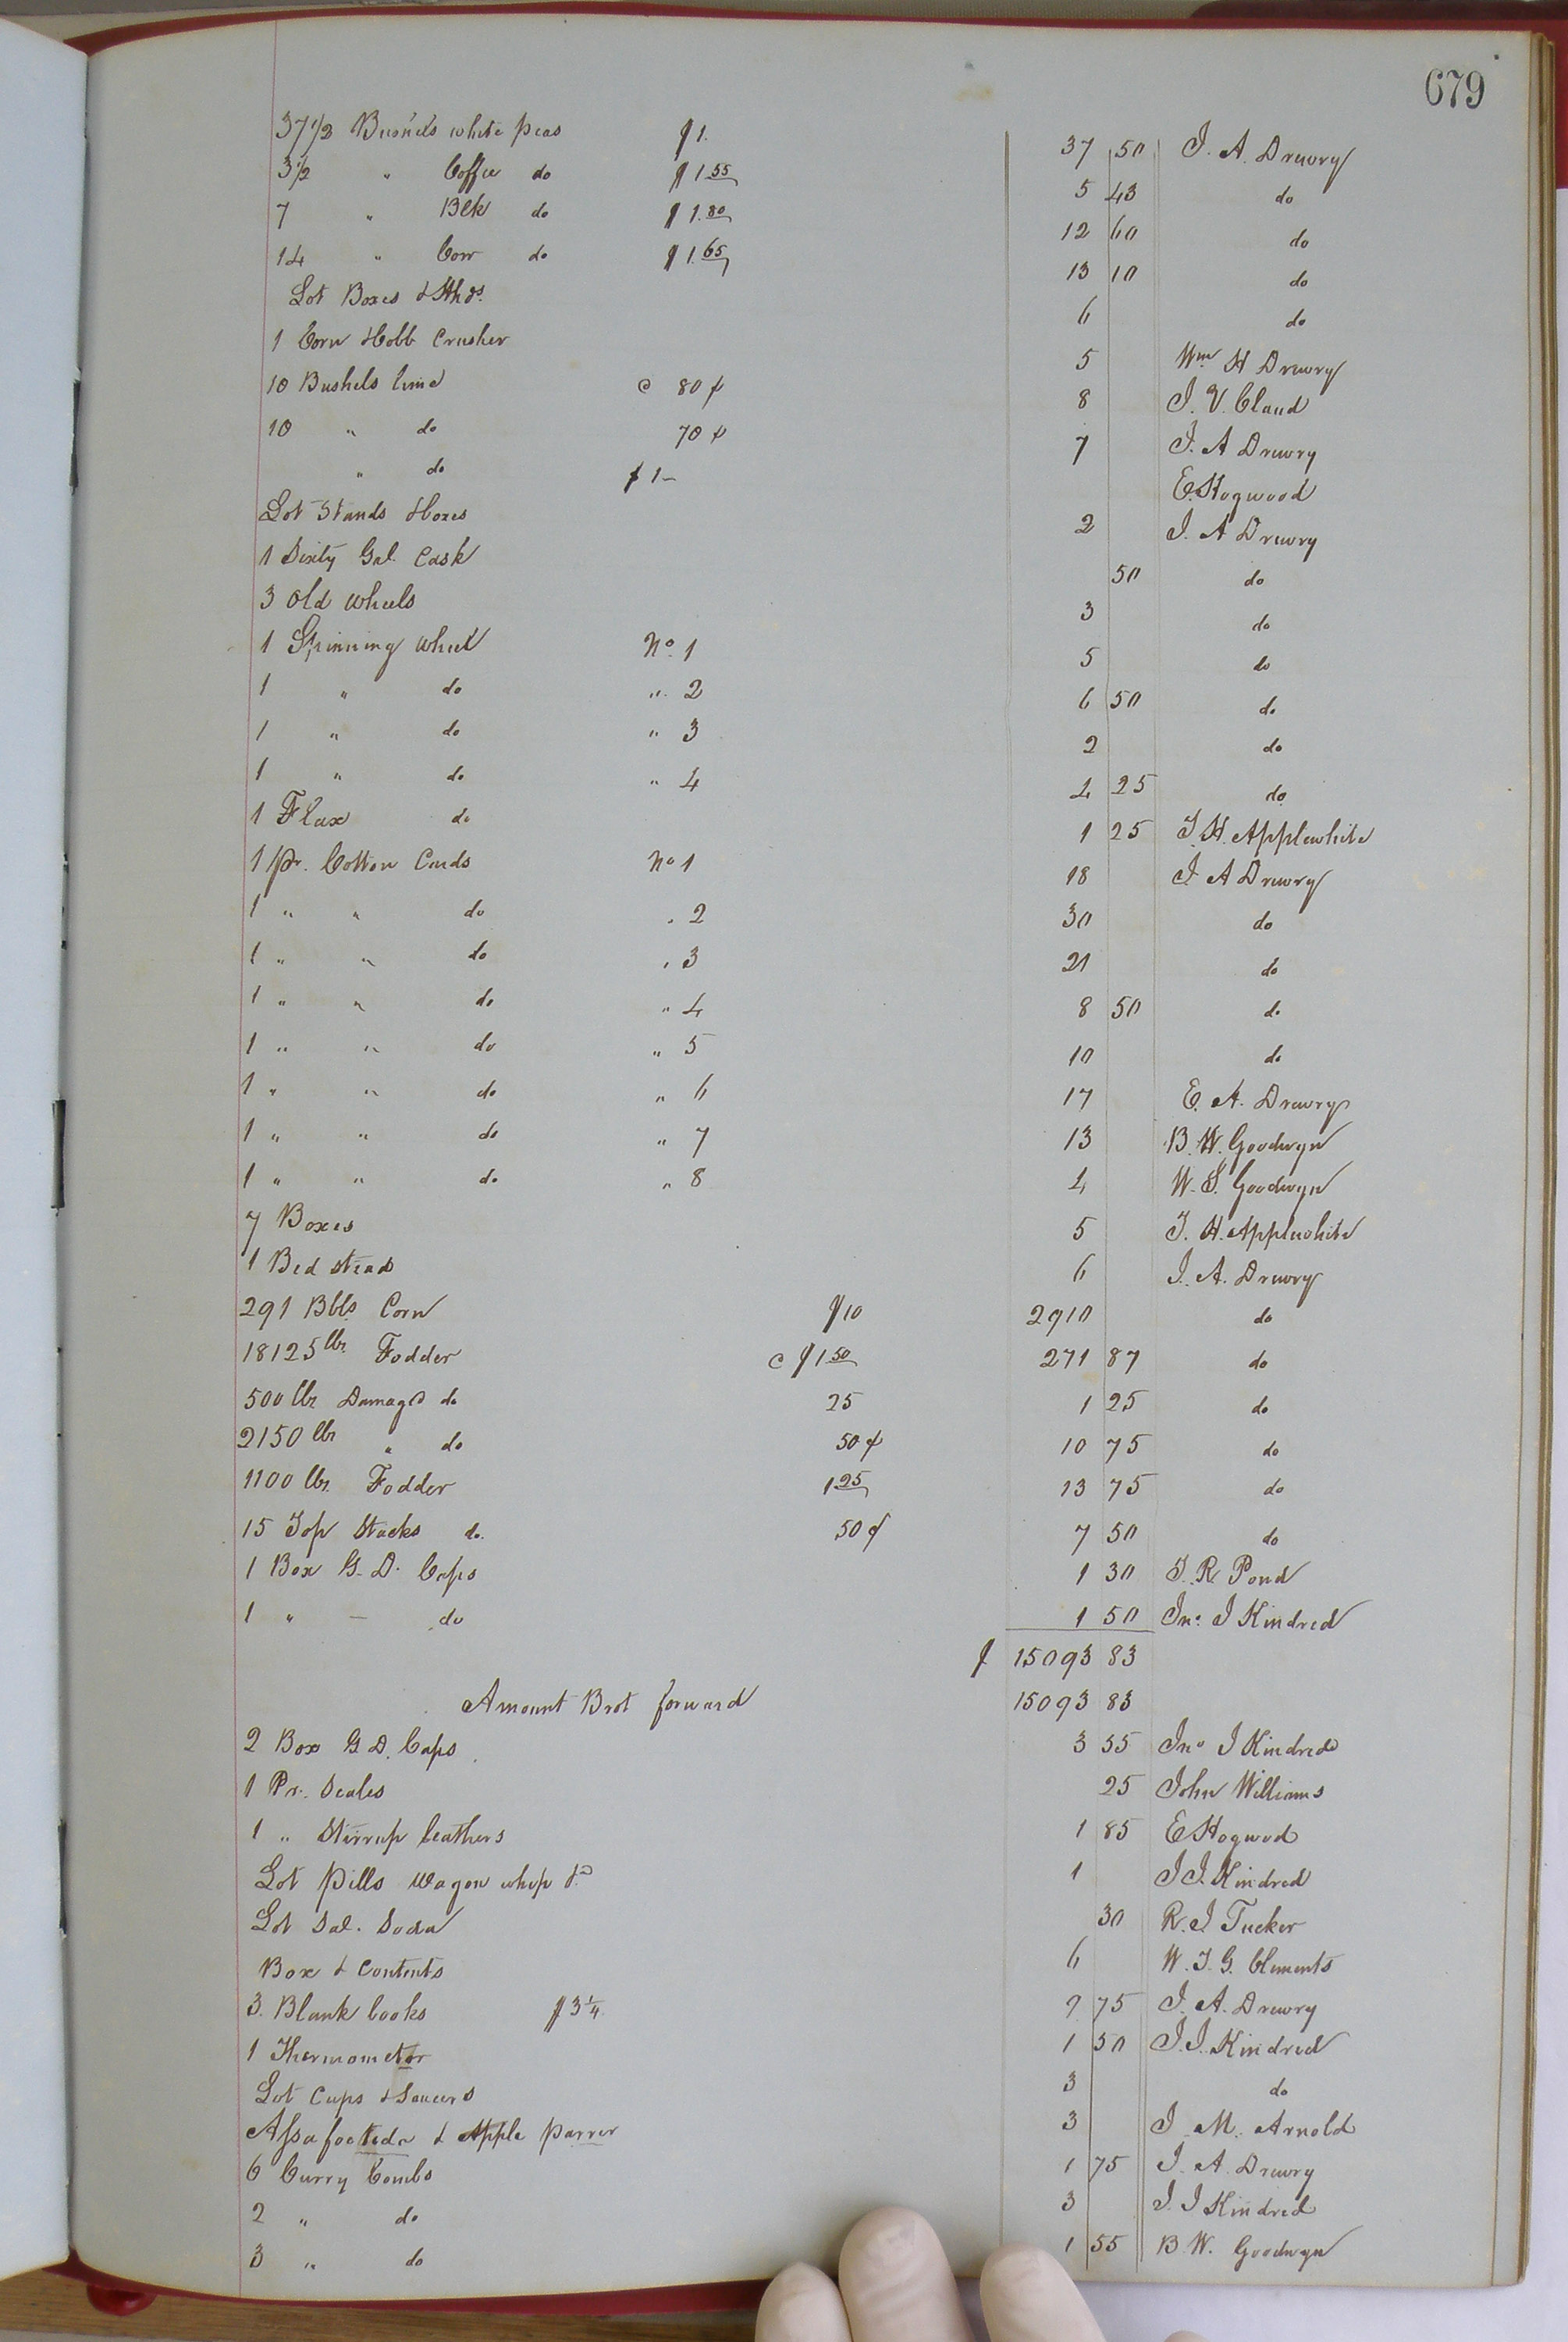 679
37 1/2 Bushels white peas $1. 37 50 J. A. Drewry
3 1/2 " Coffee do $1 55 5 43 do
7 " Blk do $1.80 12 60 do
14 " Corn do $1.65 13 10 do
Lot Boxes & Hhds. 6 do
1 Corn & Cobb Crusher 5 Wm H Drewry
10 Bushels lime @ 80 ¢ 8 J. V. Claud
10 " do 70 ¢ 7 J. A Drewry
" do $1– E. Hogwood
Lot Stands & boxes 2 J. A Drewry
1 Sixty Gal. Cask 50 do
3 Old Wheels 3 do
1 Spinning Wheel No. 1 5 do
1 " do " 2 6 50 do
1 " do " 3 2 do
1 " do " 4 4 25 do
1 Flax do 1 25 T. H. Applewhite
1 pr. Cotton Cards No 1 18 J. A Drewry
1 " " do " 2 30 do
1 " " do " 3 21 do
1 " " do " 4 8 50 do
1 " " do " 5 10 do
1 " " do " 6 17 E. A. Drewry
1 " " do " 7 13 B. W. Goodwyn
1 " " do " 8 4 W. S. Goodwyn
7 Boxes 5 T. H. Applewhite
1 Bed stead 6 J. A. Drewry
291 Bbls Corn $10 2910 do
18125 lbs. Fodder @ $1 50 271 87 do
500 lbs Damagd do 25 1 25 do
2150 lbs " do 50 ¢ 10 75 do
1100 lbs. Fodder 1 25 13 75 do
15 Top Stacks do. 50 ¢ 7 50 do
1 Box G. D. Caps 1 30 T. R. Pond
1 " — do 1 50 Jno. J Kindred
$ 15093 83
Amount Brot forward 15093 83
2 Box G. D. Caps 3 55 Jno J Kindred
1 Pr. Scales 25 John Williams
1 " Stirrup leathers 1 85 E Hogwod
Lot pills wagon whip &c 1 J J. Kindred
Lot Sal. Soda 30 R. J Tucker
Box & Contents 6 W. T. G. Clements
3. Blank books $3 1/4 9 75 J. A. Drewry
1 Thermometor 1 50 J. J. Kindred
Lot Cups & Saucers 3 do
Assafoetida & Apple parrer 3 J. M. Arnold
6 Curry Combs 1 75 J. A. Drewry
2 " do 3 J. J Kindred
3 " do 1 55 B. W. Goodwyn